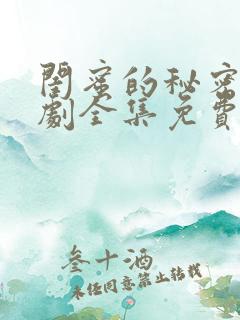 闺蜜的秘密
劇全集免費
叁十酒
未经同意禁止转载